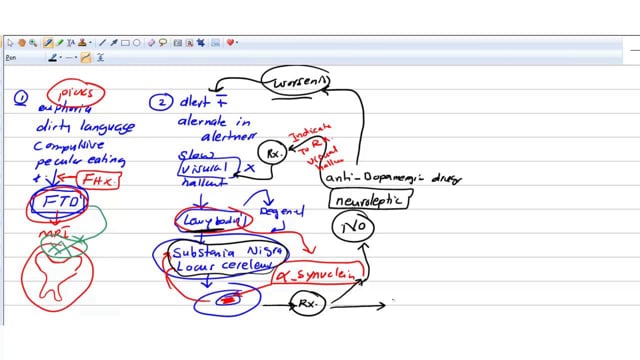 Pen
1
picks
euphoria
dirty language
compulsive
pecular eating
+
FHx.
FTD
MRI
2
alert
alernate in
alertness
slow
visural
hallut
X
Rx.
Indicate
To Rx.
visual
hallu
worsens
anti-Dopamergic drugs
neuroleptic
NO
Lewy bodies
Degener
Substania Nigra
Locus cereleus
α-synuclein
Rx.